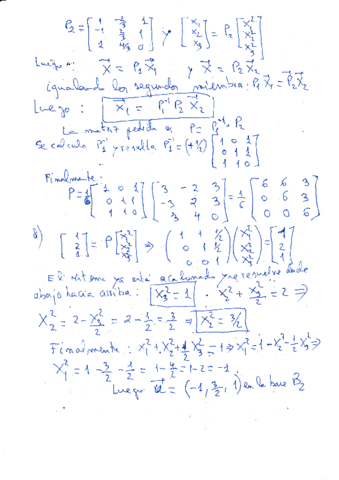 P₂ = [1 -2/3 1; -1 2/3 1; 1 4/3 0] y [x₁; x₂; x₃] = P₂ [x₁²; x₂²; x₃²]
Luego: X⃗ = P₁X⃗₁ y X⃗ = P₂X⃗₂
igualando los segundos miembros: P₁X⃗₁ = P₂X⃗₂
Luego: X⃗₁ = P₁⁻¹ P₂ X⃗₂
La matriz pedida es P = P₁⁻¹ · P₂
Se calcula P₁⁻¹ y resulta P₁⁻¹ = (+1/2) [1 0 1; 0 1 1; 1 1 0]
Finalmente:
P = 1/6 [1 0 1; 0 1 1; 1 1 0] [3 -2 3; -3 2 3; 3 4 0] = 1/6 [6 6 3; 0 6 3; 0 0 6]
[1; 2; 1] = P [x₁²; x₂²; x₃²] ⇒ (1 1 1/2; 0 1 1/2; 0 0 1) (x₁²; x₂²; x₃²) = [1; 2; 1]
El sistema ya está escalonado y se resuelve desde
abajo hacia arriba: x₃² = 1 . x₂² + x₃²/2 = 2 ⇒
x₂² = 2 - x₃²/2 = 2 - 1/2 = 3/2 ⇒ x₂² = 3/2
Finalmente: x₁² + x₂² + 1/2 x₃² = 1 ⇒ x₁² = 1 - x₂² - 1/2 x₃² ⇒
x₁² = 1 - 3/2 - 1/2 = 1 - 4/2 = 1 - 2 = -1
Luego u⃗ = (-1, 3/2, 1) en la base B₂